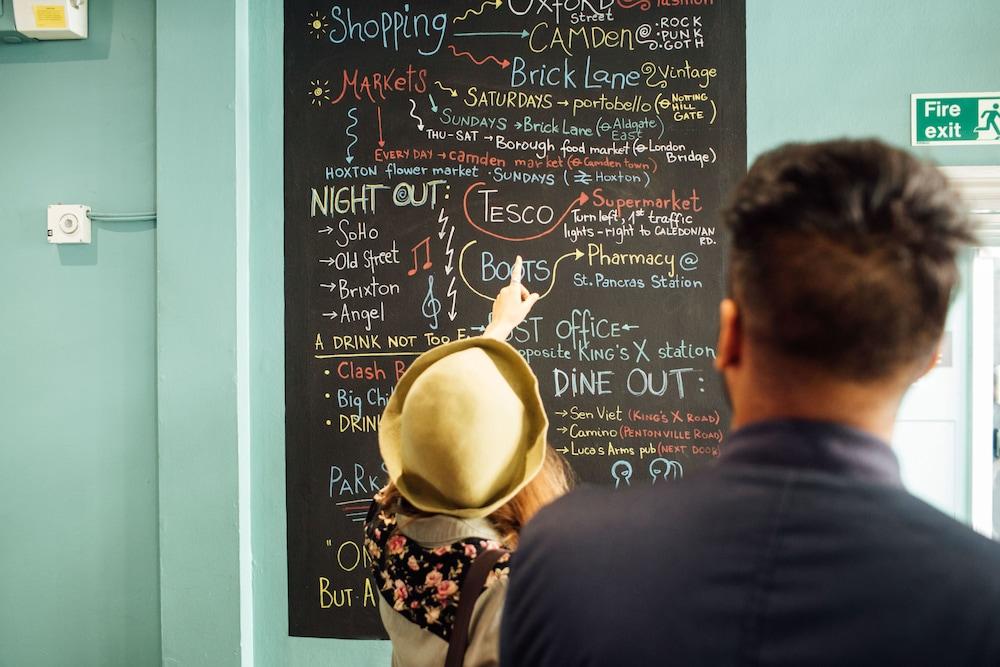 Shopping
OXFORD Street
fashion
CAMDEN @ • ROCK
• PUNK
• GOTH
Brick Lane @ Vintage
MARKETS
SATURDAYS → portobello (⊖ NOTTING HILL GATE)
SUNDAYS → Brick Lane (⊖ Aldgate East)
THU-SAT → Borough food market (⊖ London Bridge)
EVERY DAY → camden market (⊖ Camden town)
HOXTON flower market · SUNDAYS ( Hoxton)
NIGHT OUT:
→ SoHo
→ Old Street
→ Brixton
→ Angel
TESCO → Supermarket
Turn left, 1st traffic
lights - right to CALEDONIAN
RD.
BOOTS → Pharmacy @
St. Pancras Station
POST office ←
opposite KING'S X station
A DRINK NOT TOO
• Clash
• Big
• DRIN
DINE OUT:
→ Sen Viet (KING'S X ROAD)
→ Camino (PENTONVILLE ROAD)
→ Luca's Arms pub (NEXT DOOR)
PARKS
"ON
BUT A
Fire
exit